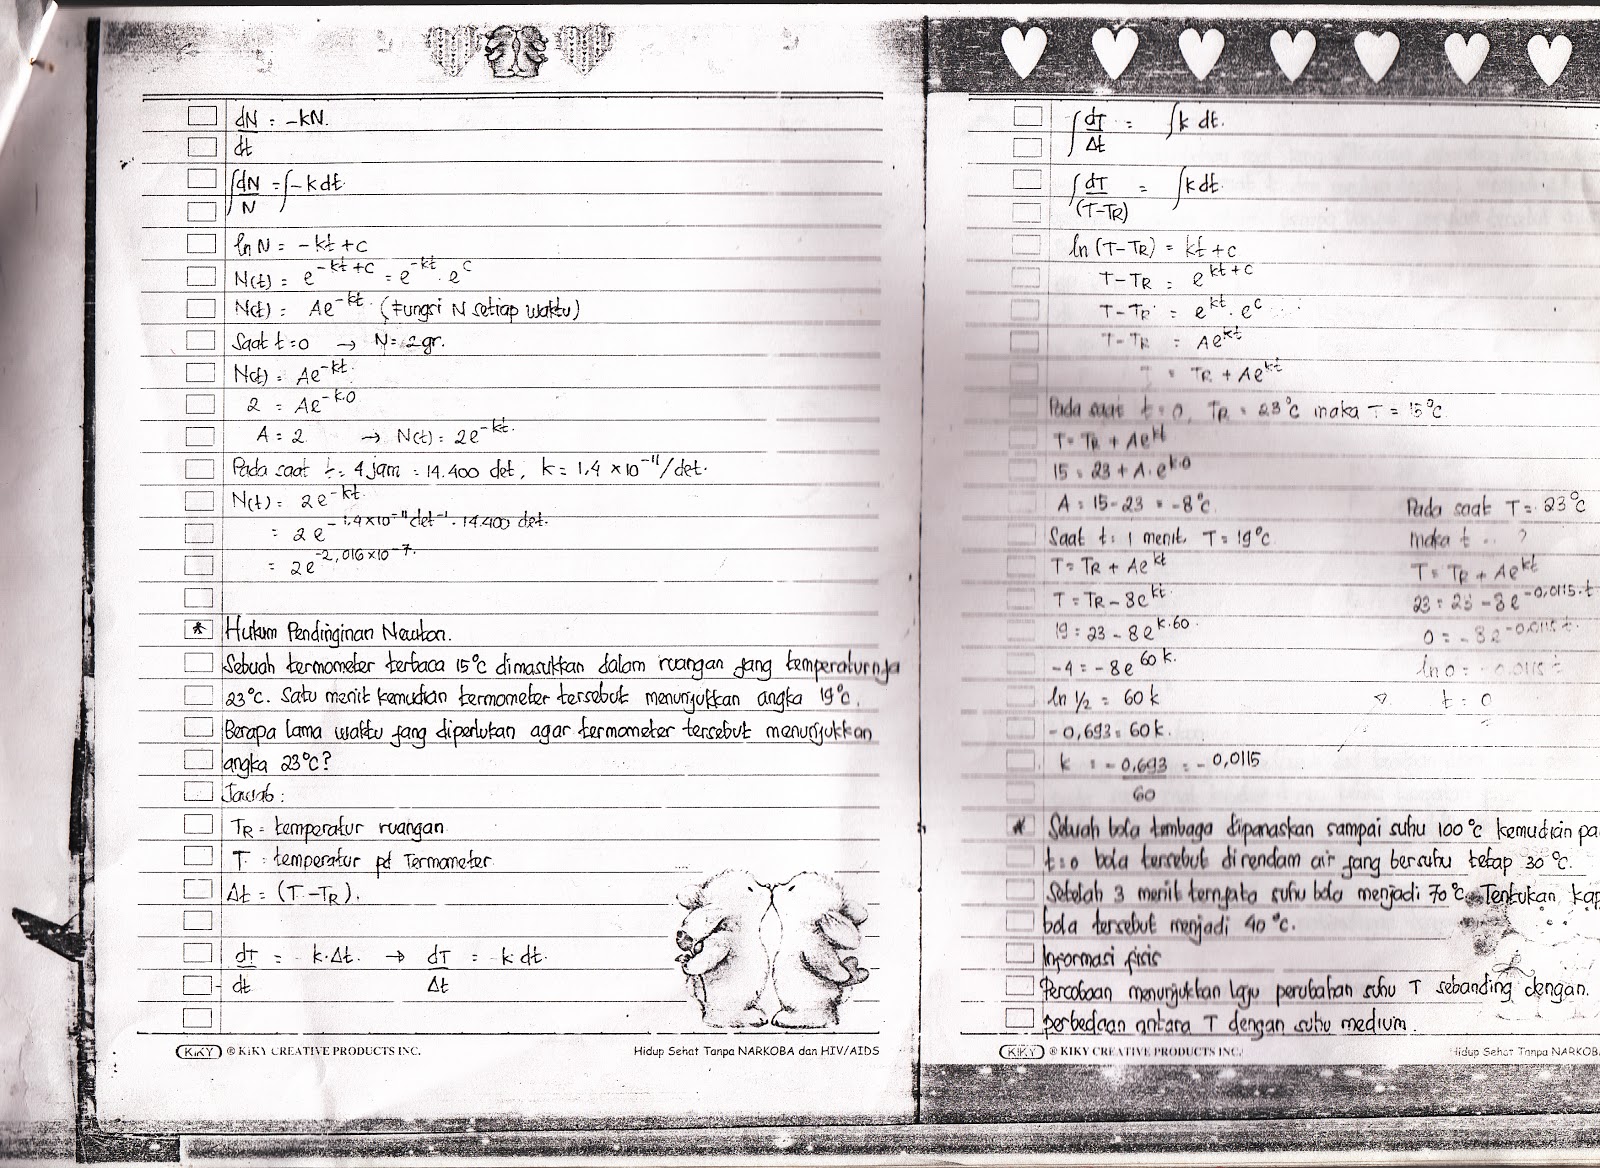 dN = -kN.
dt
∫dN = ∫-k dt.
N
ln N = -kt + c
N(t) = e^-kt+c = e^-kt . e^c
N(t) = Ae^-kt. (Fungsi N setiap waktu)
Saat t=0 → N= 2gr.
N(t) = Ae^-kt.
2 = Ae^-k.0
A = 2. → N(t) = 2e^-kt.
Pada saat t= 4 jam = 14.400 det, k = 1,4 × 10^-11/det.
N(t) = 2e^-kt.
= 2e^-1,4×10^-11 det^-1 . 14.400 det.
= 2e^-2,016×10^-7.
Hukum Pendinginan Newton.
Sebuah termometer terbaca 15°C dimasukkan dalam ruangan yang temperaturnya
23°C. Satu menit kemudian termometer tersebut menunjukkan angka 19°C.
Berapa lama waktu yang diperlukan agar termometer tersebut menunjukkan
angka 23°C?
Jawab :
TR = temperatur ruangan
T = temperatur pd Termometer
Δt = (T-TR).
dT = k.Δt. → dT = k dt.
dt Δt
KiKY ® KiKY CREATIVE PRODUCTS INC. Hidup Sehat Tanpa NARKOBA dan HIV/AIDS
∫dT = ∫k dt.
Δt
∫dT = ∫k dt.
(T-TR)
ln (T-TR) = kt + c
T-TR = e^kt+c
T-TR = e^kt . e^c
T-TR = Ae^kt
= TR + Ae^kt
Pada saat t=0, TR = 23°C maka T = 15°C
T= TR + Ae^kt
15 = 23 + A.e^k.0
A = 15-23 = -8°C.
Saat t= 1 menit, T= 19°C
T= TR + Ae^kt
T= TR - 8e^kt.
19 = 23 - 8e^k.60
-4 = -8e^60k.
ln 1/2 = 60k
-0,693 = 60k.
k = -0,693 = -0,0115
60
Pada saat T= 23°C
maka t ... ?
T= TR + Ae^kt
23 = 23 - 8e^-0,0115.t
0 = -8e^-0,0115t.
ln 0 = -0,0115t
t = 0
Sebuah bola tembaga dipanaskan sampai suhu 100°C kemudian pa
t=0 bola tersebut direndam air yang bersuhu tetap 30°C.
Setelah 3 menit ternyata suhu bola menjadi 70°C. Tentukan kap
bola tersebut menjadi 40°C.
Informasi fisis
Percobaan menunjukkan laju perubahan suhu T sebanding dengan.
perbedaan antara T dengan suhu medium.
KiKY ® KIKY CREATIVE PRODUCTS INC. Hidup Sehat Tanpa NARKOB